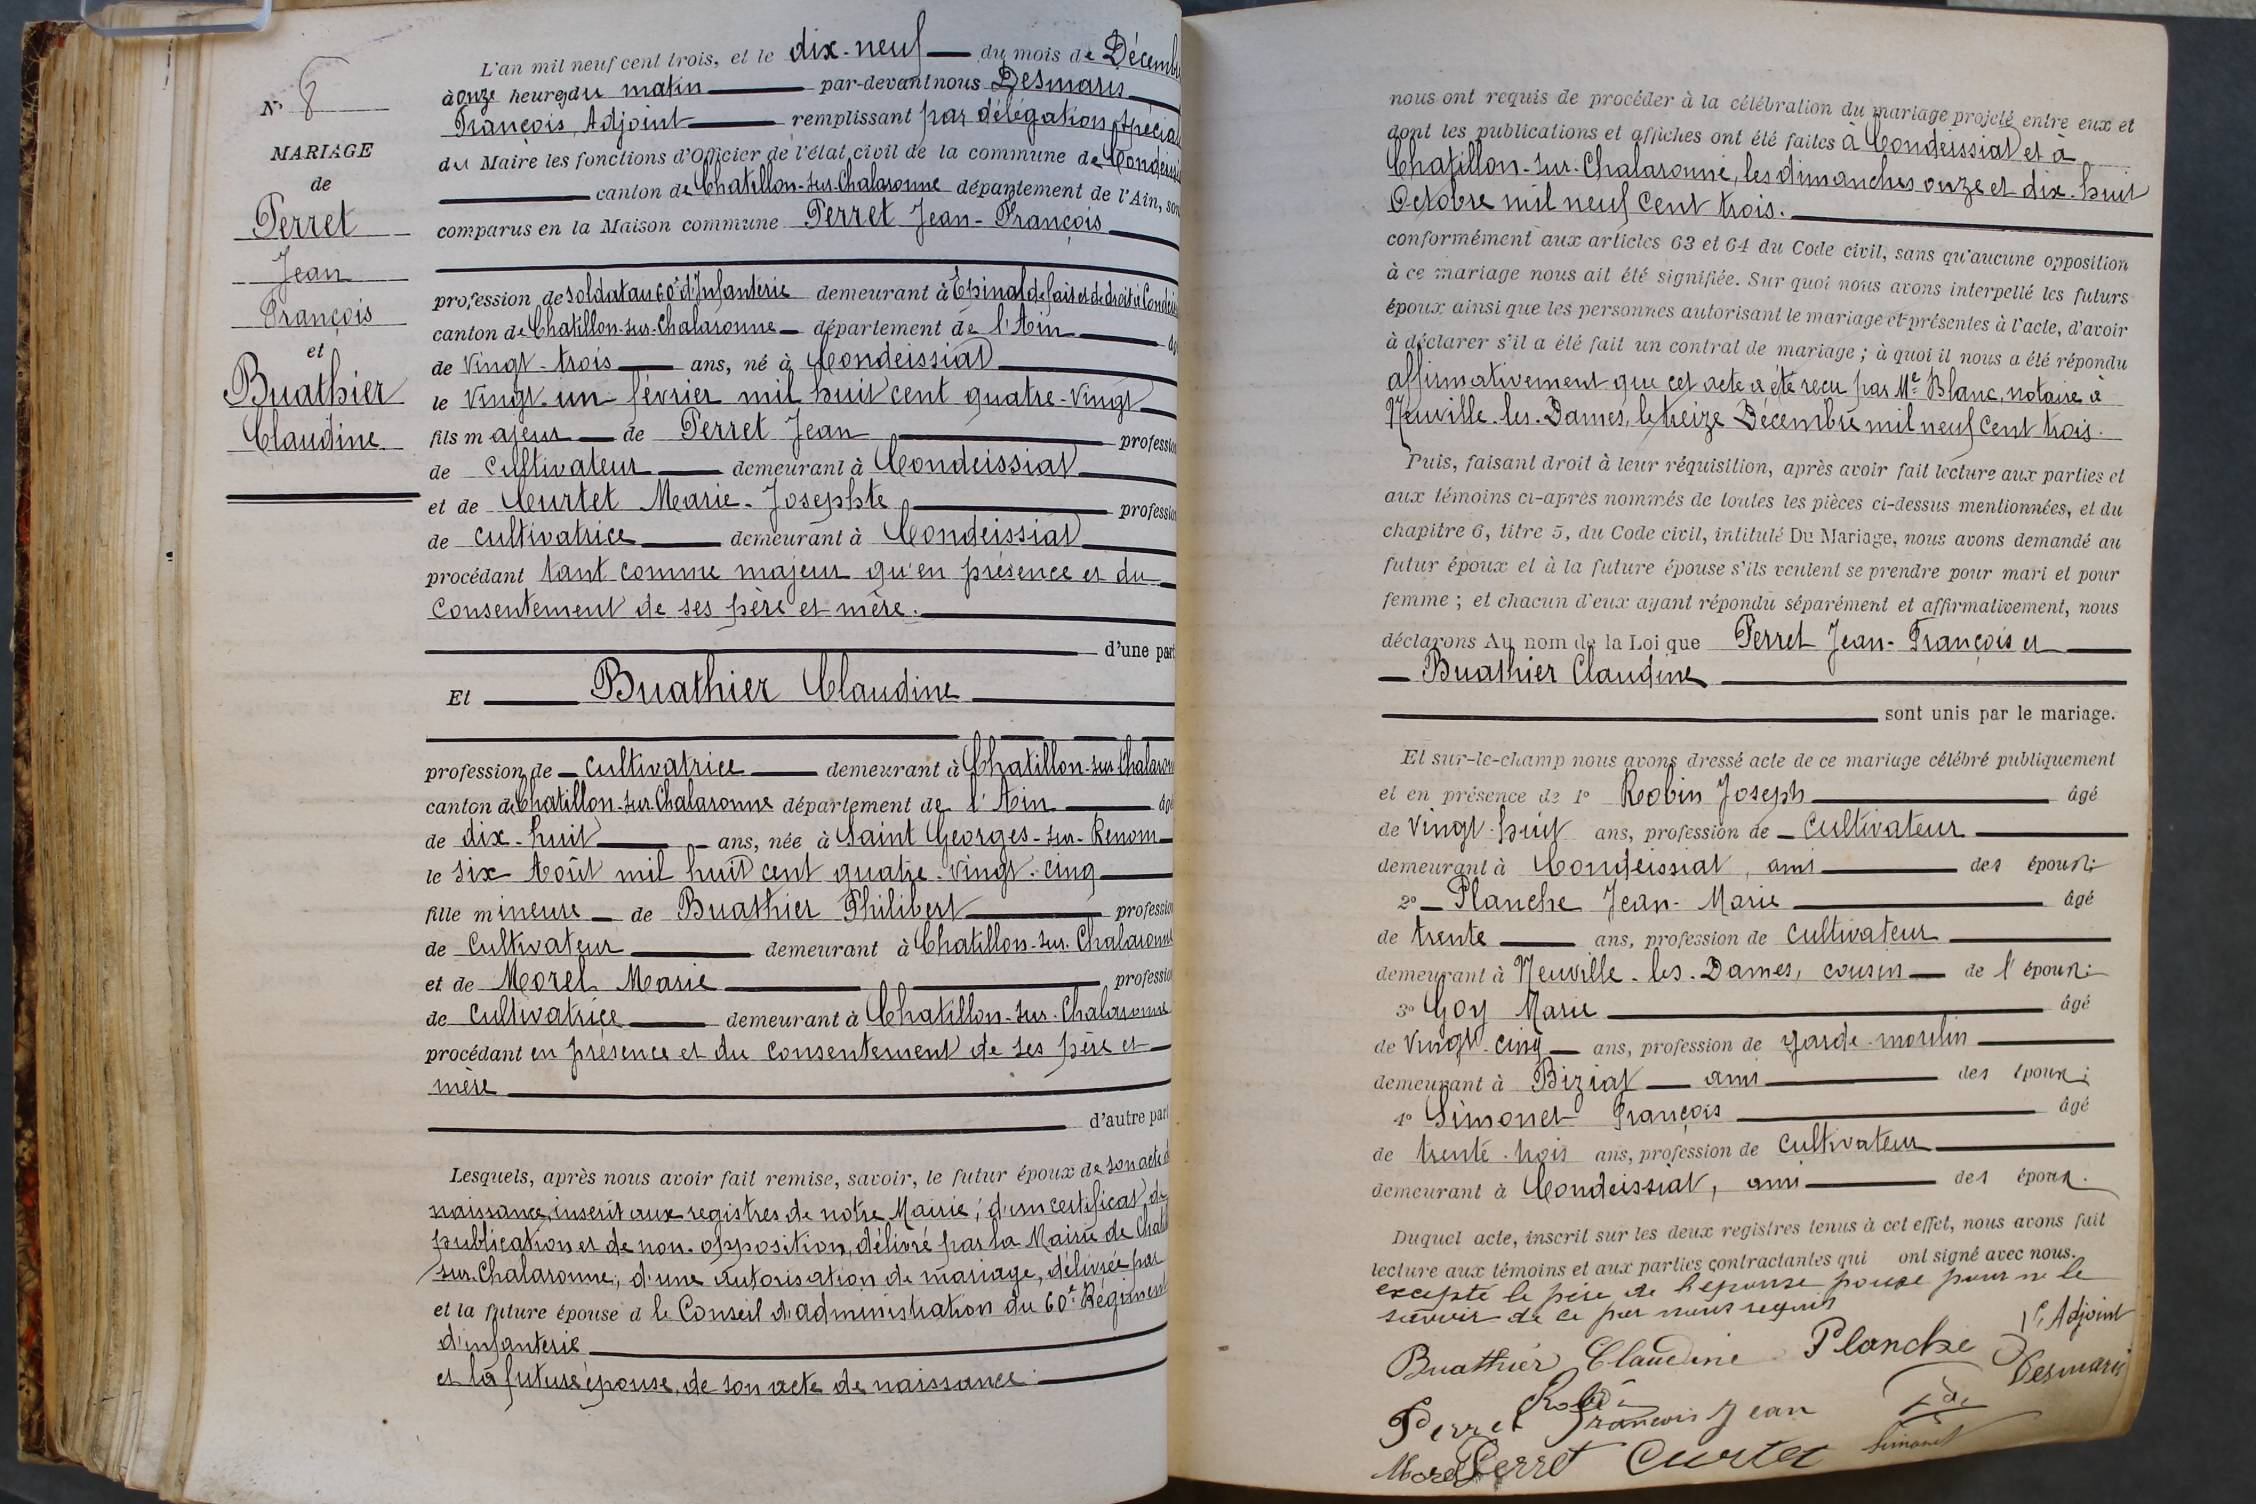 N° 8
MARIAGE
de
Perret
Jean
François
et
Buathier
Claudine
L'an mil neuf cent trois, et le dix-neuf du mois de Décemb
à onze heures du matin par-devant nous Desmaris
François Adjoint remplissant par délégation spécial
du Maire les fonctions d'Officier de l'état civil de la commune de Condeissi
canton de Chatillon-sur-Chalaronne département de l'Ain, son
comparus en la Maison commune Perret Jean-François
profession de soldat au 60e d'Infanterie demeurant à Epinal de fait et de droit à Condeis
canton de Chatillon-sur-Chalaronne département de l'Ain âg
de vingt-trois ans, né à Condeissiat
le vingt-un février mil huit cent quatre-vingt
fils majeur de Perret Jean profession
de cultivateur demeurant à Condeissiat
et de Curtet Marie-Josephte profession
de cultivatrice demeurant à Condeissiat
procédant tant comme majeur qu'en présence et du
consentement de ses père et mère.
d'une part
Et Buathier Claudine
profession de cultivatrice demeurant à Chatillon-sur-Chalaron
canton de Chatillon-sur-Chalaronne département de l'Ain âgé
de dix-huit ans, née à Saint Georges-sur-Renom
le six Août mil huit cent quatre-vingt-cinq
fille mineure de Buathier Philibert profession
de cultivateur demeurant à Chatillon-sur-Chalaronne
et de Morel Marie profession
de cultivatrice demeurant à Chatillon-sur-Chalaronne
procédant en présence et du consentement de ses père et
mère
d'autre part
Lesquels, après nous avoir fait remise, savoir, le futur époux de son acte d
naissance, inscrit aux registres de notre Mairie; d'un certificat de
publication et de non-opposition, délivré par la Mairie de Chat
sur-Chalaronne; d'une autorisation de mariage, délivrée par
et la future épouse d le Conseil d'administration du 60e Régiment
d'infanterie
et la future épouse, de son acte de naissance.
nous ont requis de procéder à la célébration du mariage projeté entre eux et
dont les publications et affiches ont été faites à Condeissiat et à
Chatillon-sur-Chalaronne, les dimanches onze et dix-huit
Octobre mil neuf cent trois.
conformément aux articles 63 et 64 du Code civil, sans qu'aucune opposition
à ce mariage nous ait été signifiée. Sur quoi nous avons interpellé les futurs
époux ainsi que les personnes autorisant le mariage et présentes à l'acte, d'avoir
à déclarer s'il a été fait un contrat de mariage; à quoi il nous a été répondu
affirmativement que cet acte a été reçu par Me Blanc, notaire à
Neuville-les-Dames, le treize Décembre mil neuf cent trois.
Puis, faisant droit à leur réquisition, après avoir fait lecture aux parties et
aux témoins ci-après nommés de toutes les pièces ci-dessus mentionnées, et du
chapitre 6, titre 5, du Code civil, intitulé Du Mariage, nous avons demandé au
futur époux et à la future épouse s'ils veulent se prendre pour mari et pour
femme; et chacun d'eux ayant répondu séparément et affirmativement, nous
déclarons Au nom de la Loi que Perret Jean-François et
Buathier Claudine
sont unis par le mariage.
Et sur-le-champ nous avons dressé acte de ce mariage célébré publiquement
et en présence de 1° Robin Joseph âgé
de vingt-huit ans, profession de cultivateur
demeurant à Condeissiat, ami des époux;
2° Planche Jean-Marie âgé
de trente ans, profession de cultivateur
demeurant à Neuville-les-Dames, cousin de l'époux;
3° Goy Marie âgé
de vingt-cinq ans, profession de garde-moulin
demeurant à Biziat ami des époux;
4° Simonet François âgé
de trente-trois ans, profession de cultivateur
demeurant à Condeissiat, ami des époux.
Duquel acte, inscrit sur les deux registres tenus à cet effet, nous avons fait
lecture aux témoins et aux parties contractantes qui ont signé avec nous.
excepté le père de l'épouse pour ne le
savoir de ce par nous requis
Buathier Claudine Planche l'Adjoint
Desmaris
Robin
Perret François Jean
Morel Perret Curtet Simonet